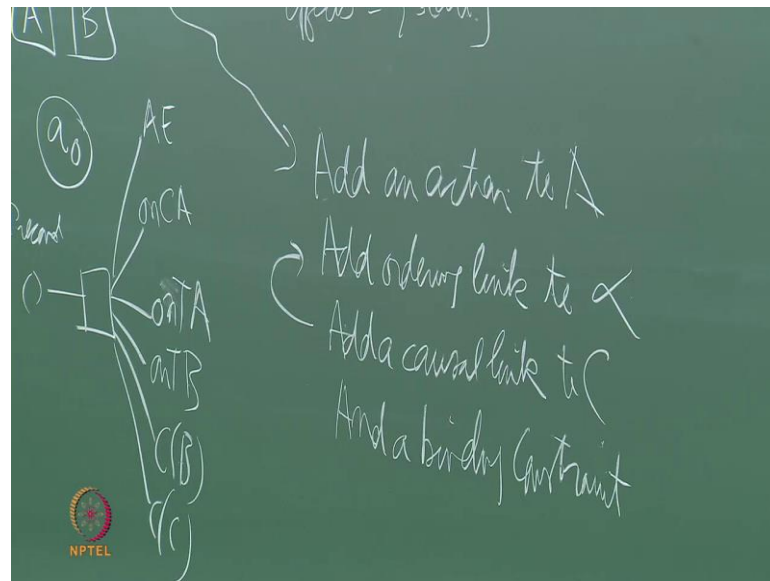 A B
effects = { start. }
a0
AE
onCA
onTA
onTB
C(B)
C(C)
Precond
()
Add an action to A
Add ordering link to ≺
Add a causal link to C
And a binding Constraint
NPTEL